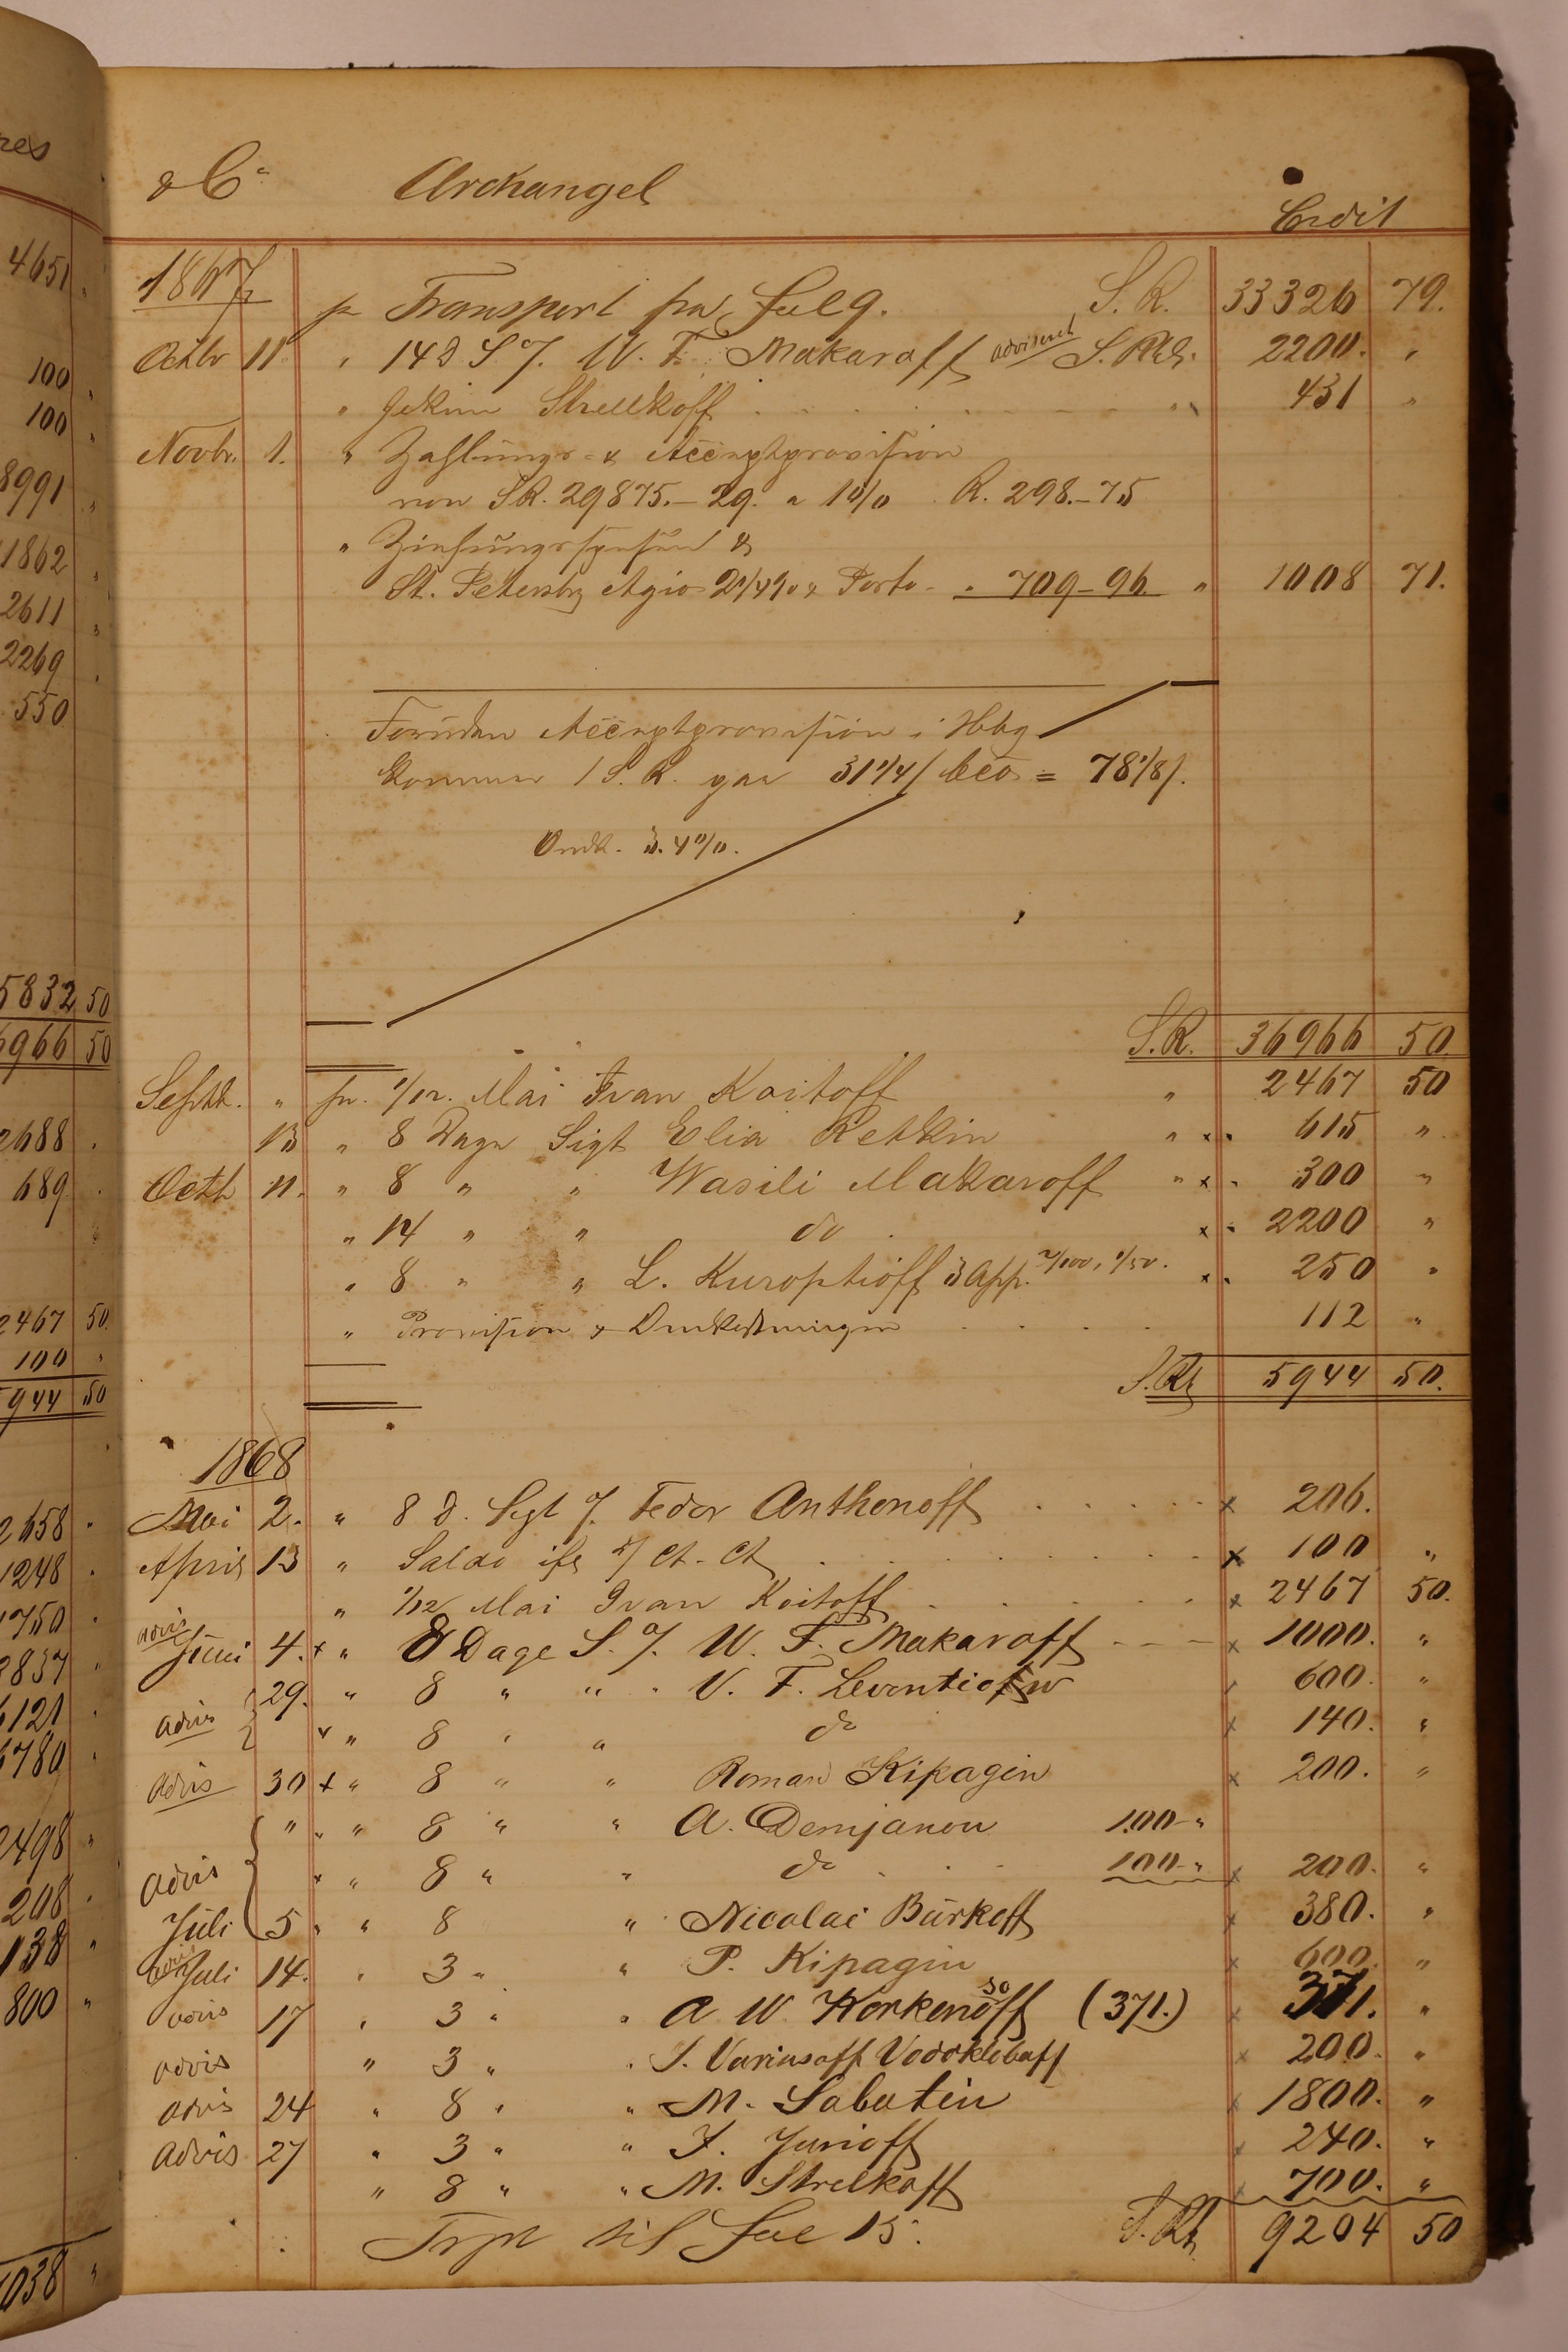 & Co. Archangel
Credit
1867
pr Transport fra Fol 9. S. R. 33326 79.
Octbr 11. " 14 D S %. W. F. Makaroff adviseret S. Rbl. 2200. "
" Jekim Strelkoff . . . " 431 "
Novbr. 1. " Zahlungs- & Acceptprovision
von SR. 29875.-29. a 1 0/0 R. 298.-75
" Ziehungsspesen &
St. Petersbg Agio 2 1/4 % & Porto - " 709-96. " 1008 71.
Foruden Acceptprovision i Hbg
kommer 1 S. R. paa 31 1/4 / bco = 78 1/8 /.
Omk. 3.4 0/0.
S.R. 36966 50
Septbr. " pr. 1/12. Mai Ivan Koitoff " 2467 50
13 " 8 Dage Sigt Elia Retkin " x. 615 "
Octbr 11. " 8 " " Wasili Makaroff " x " 300 "
" 14 " " do . x " 2200 "
" 8 " " L. Kuroptioff 3 App. 2/100, 1/50. x. 250 "
" Provision & Omkostninger . . . . 112 "
S.Rb 5944 50.
1868
Mai 2. " 8 D. Sigt %. Fedor Anthonoff . . . . . x 206.
April 13 " Saldo ifg %  Ct. Ct . . . . x 100 "
" 1/12 Mai Ivan Koitoff . . . . x 2467 50.
advis
Juni 4. x " 8 Dage S. %. W. F. Makaroff - - - x 1000. "
29. " 8 " " " V. F. Leventiefw 600. "
advis x " 8 " " do x 140. "
advis 30 x " 8 " " Roman Kipagin x 200. "
" " " 8 " " A. Demjanou 100 "
advis x " 8 " " do . . . 100 " x 200. "
Juli 5 " " 8 " Nicolai Bürkoff x 380. "
advis Juli 14. " 3 " " P. Kipagin x 600. "
advis 17 " 3 " " A W. Korkenoff so (371.) x 371. "
advis " 3 " " S. Variusoff Vodoklebaff x 200. "
advis 24 " 8 " " M. Sabatin x 1800. "
advis 27 " 3 " " F. Jurioff x 240. "
" 8 " " M. Strelkoff x 700. "
Trpt til Fol 15. S. Rb. 9204 50
4651 "
100 "
100 "
8991 "
1862 "
2611 "
2269 "
550
5832 50
6966 50
2688 "
689 "
2467 50.
100 "
5944 50
2658 "
1248 "
1750 "
6121 "
6780 "
2498 "
208 "
138 "
800 "
038 "